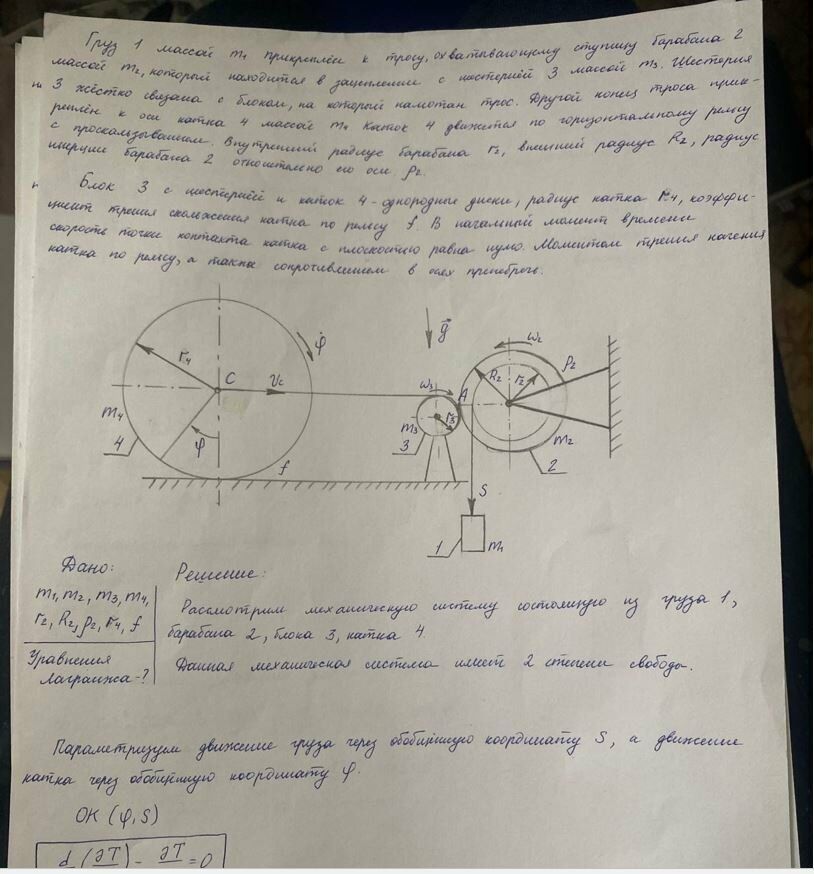 Груз 1 массой m₁ прикреплён к тросу, охватывающему ступицу барабана 2
массой m₂, который находится в зацеплении с шестернёй 3 массой m₃. Шестерня
3 жёстко связана с блоком, на который намотан трос. Другой конец троса прик-
реплён к оси катка 4 массой m₄. Каток 4 движется по горизонтальному рельсу
с проскальзыванием. Внутренний радиус барабана r₂, внешний радиус R₂, радиус
инерции барабана 2 относительно его оси ρ₂.
Блок 3 с шестернёй и каток 4 - однородные диски, радиус катка r₄, коэффи-
циент трения скольжения катка по рельсу f. В начальный момент времени
скорость точки контакта катка с плоскостью равна нулю. Моментом трения качения
катка по рельсу, а также сопротивлением в осях пренебречь.
r₄
φ̇
C
v_C
g⃗
ω₂
ρ₂
R₂
r₂
ω₃
A
m₃
r₃
3
m₄
4
φ
f
m₂
2
S
1
m₁
Дано:
m₁, m₂, m₃, m₄,
r₂, R₂, ρ₂, r₄, f
Уравнения
Лагранжа-?
Решение:
Рассмотрим механическую систему состоящую из груза 1,
барабана 2, блока 3, катка 4.
Данная механическая система имеет 2 степени свобода.
Параметризуем движение груза через обобщённую координату S, а движение
катка через обобщённую координату φ.
ОК (φ, S)
d (∂T) - ∂T = 0